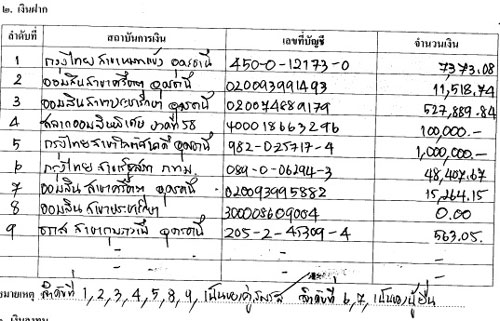 ๒. เงินฝาก
ลำดับที่ สถาบันการเงิน เลขที่บัญชี จำนวนเงิน
1 กรุงไทย สาขา อุดรธานี 450-0-12173-0 7373.08
2 ออมสิน สาขาศรีสุข อุดรธานี 020093991493 11,518.74
3 ออมสิน สาขาประชารักษา อุดรธานี 020074889179 527,889.84
4 สลากออมสินพิเศษ งวดที่ 58 400018663296 100,000.-
5 กรุงไทย สาขา อุดรธานี 982-025717-4 1,000,000.-
6 กรุงไทย สาขา กทม 089-0-06294-3 48,407.67
7 ออมสิน สาขาศรีสุข อุดรธานี 020093995882 15,264.15
8 ออมสิน สาขาประชารักษา 300008609004 0.00
9 ธกส สาขากุมภวาปี อุดรธานี 205-2-45309-4 563.05.
- - -
- - -
หมายเหตุ ลำดับที่ 1,2,3,4,5,8,9, เป็นของคู่สมรส ลำดับที่ 6,7, เป็นของผู้ยื่น
เงินลงทุน